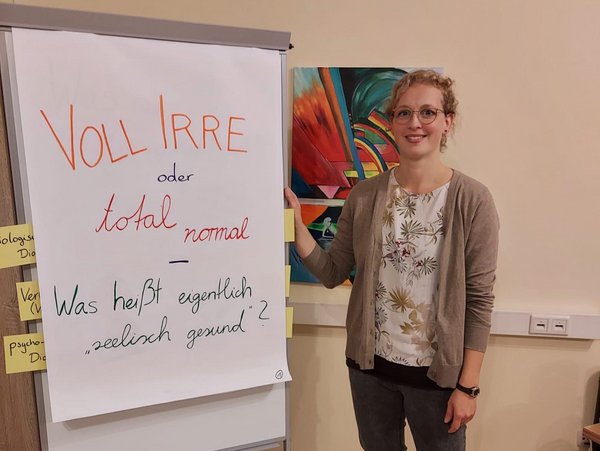 VOLL IRRE
oder
total normal
–
Was heißt eigentlich
„seelisch gesund"?
Dia
psycho-
Dia